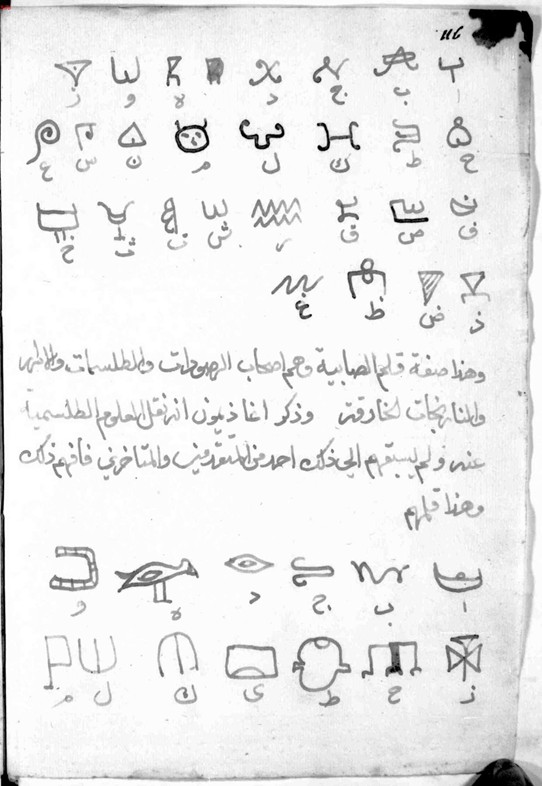 ا ب ج د ه و ز
ح ط ك ل م ن س ع
ف ص ق ر ش ت ث خ
ذ ض ظ غ
وهذا صفة قلم الصابية وهم اصحاب والطلسمات
الخارقة وذكر اغاذيمون انه نقل العلوم الطلسمية
عنهم ولم يسبقهم الى ذلك احد من المتقدمين والمتاخرين فافهم ذلك
وهذا قلمهم
ا ب ج د ه و
ز ح ط ى ك ل م